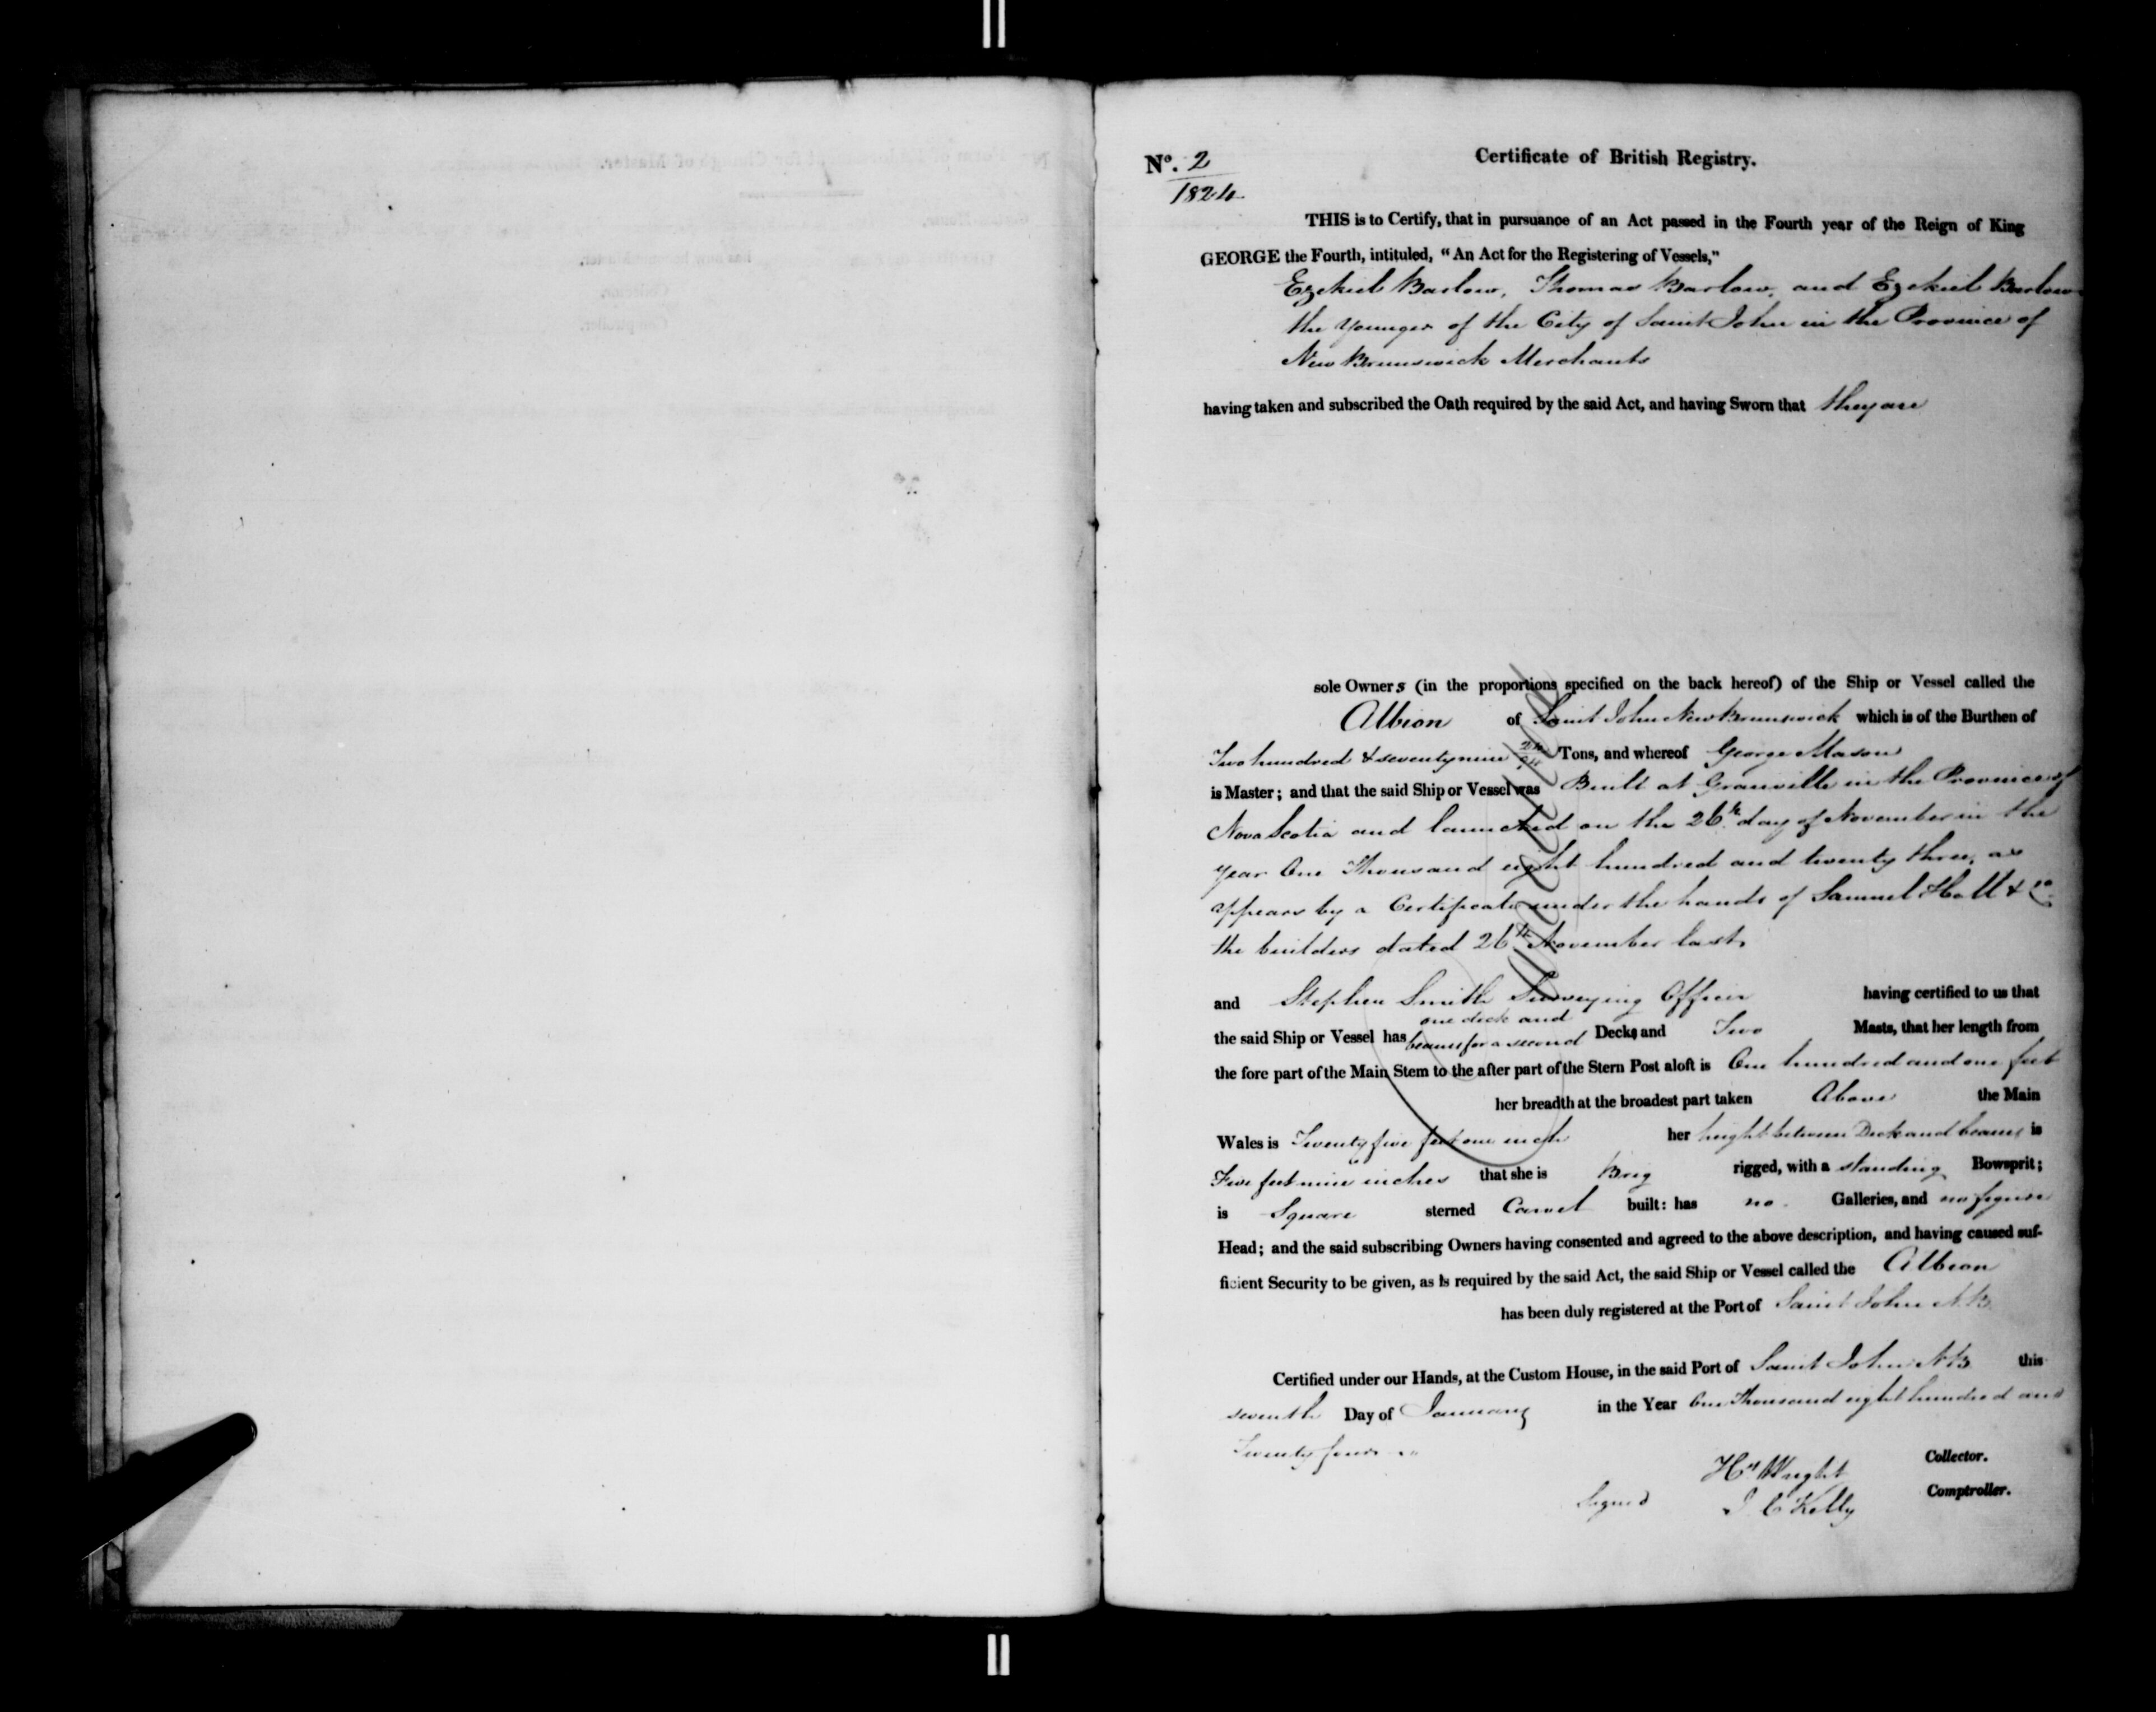 Nº. 2
1824
Certificate of British Registry.
THIS is to Certify, that in pursuance of an Act passed in the Fourth year of the Reign of King
GEORGE the Fourth, intituled, "An Act for the Registering of Vessels,"
Ezekiel Barlow, Thomas Barlow, and Ezekiel Barlow
the Younger of the City of Saint John in the Province of
New Brunswick Merchants
having taken and subscribed the Oath required by the said Act, and having Sworn that they are
sole Owners (in the proportions specified on the back hereof) of the Ship or Vessel called the
Albion of Saint John New Brunswick which is of the Burthen of
Two hundred & seventy nine Tons, and whereof George Mason
is Master; and that the said Ship or Vessel was Built at Granville in the Province of
Nova Scotia and launched on the 26th day of November in the
year One Thousand eight hundred and twenty three, as
appears by a Certificate under the hands of Samuel Hall & Co
the builders dated 26th November last,
and Stephen Smith Surveying Officer having certified to us that
the said Ship or Vessel has one deck and beams for a second Decks and Two Masts, that her length from
the fore part of the Main Stem to the after part of the Stern Post aloft is One hundred and one feet
her breadth at the broadest part taken Above the Main
Wales is Twenty five feet one inch her height between Deck and beams is
Five feet nine inches that she is Brig rigged, with a standing Bowsprit;
is Square sterned Carvel built: has no Galleries, and no figure
Head; and the said subscribing Owners having consented and agreed to the above description, and having caused suf-
ficient Security to be given, as is required by the said Act, the said Ship or Vessel called the Albion
has been duly registered at the Port of Saint John N.B.
Certified under our Hands, at the Custom House, in the said Port of Saint John N.B. this
seventh Day of January in the Year One Thousand eight hundred and
Twenty four
Hy Wright Collector.
Signed J C Kelly Comptroller.
Cancelled